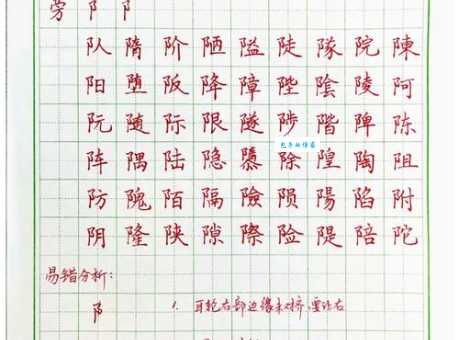 旁 阝 阝
队 隋 阶 陋 隘 陡 隊 院 陳
阳 堕 阪 降 障 陛 陰 陵 阿
阮 随 际 限 隧 陟 階 陴 陈
阵 隅 陆 隐 隳 除 隍 陶 阻
防 隗 陌 隔 險 陨 陽 陷 附
阴 隆 陕 隙 際 险 隄 陪 陀
易错分析:
阝 1. 耳轮右部边缘未对齐,要注右